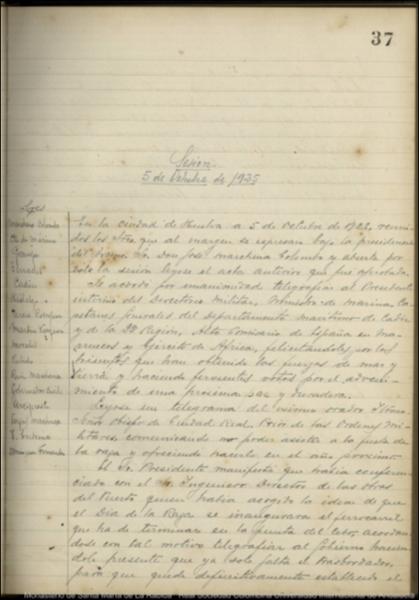 37
Sesion
5 de Octubre de 1925
Sres
En la ciudad de Huelva a 5 de Octubre de 192 reuni
dos los Sres. que al margen se expresan bajo la presidencia
del Excmo. Sr. Don José Marchena Colombo y abierta por
este la sesion leyose el acta anterior que fue aprobada.
Se acordó por unanimidad telegrafiar al Presidente
interino del Directorio Militar, Ministro de Marina, Ca
pitanes Generales del Departamento maritimo de Cadiz
y de la 2ª Región, Alto Comisario de España en Ma
rruecos y Ejercito de Africa, felicitandoles por los
que han obtenido las fuerzas de mar y
tierra y haciendo fervientes votos por el adveni
miento de una proxima paz y duradera.
Leyose un telegrama del mismo orador Ilmo.
Señor Obispo de Ciudad Real, Prior de las Ordenes Mi
litares, comunicando no poder asistir a la fiesta de
la raza y ofreciendo hacerlo en el año proximo.
El Sr. Presidente manifesta que habia conferen
ciado con el Sr. Ingeniero Director de las obras
del Puerto quien habia acogido la idea de que
el Dia de la Raza se inaugurara el ferrocarril
que ha de terminar en la punta del Sebo, acordan
dose con tal motivo telegrafiar al Gobierno hacien
dole presente que ya solo falta el trasbordador,
para que quede definitivamente establecido el
Marchena Colombo
de Morales
Cádiz
Hidalgo
Garcia
Morales
Ruiz Marchena
Gobernador Civil
Dominguez Fernandez